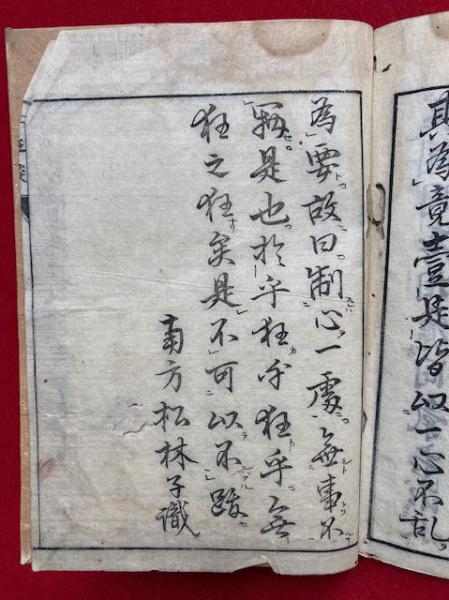 其為竟壹是皆以一心不乱
為要故曰制心一處無事不
辨是也於乎狂乎狂乎無
狂之狂矣是不可以不跋
南方松林子識